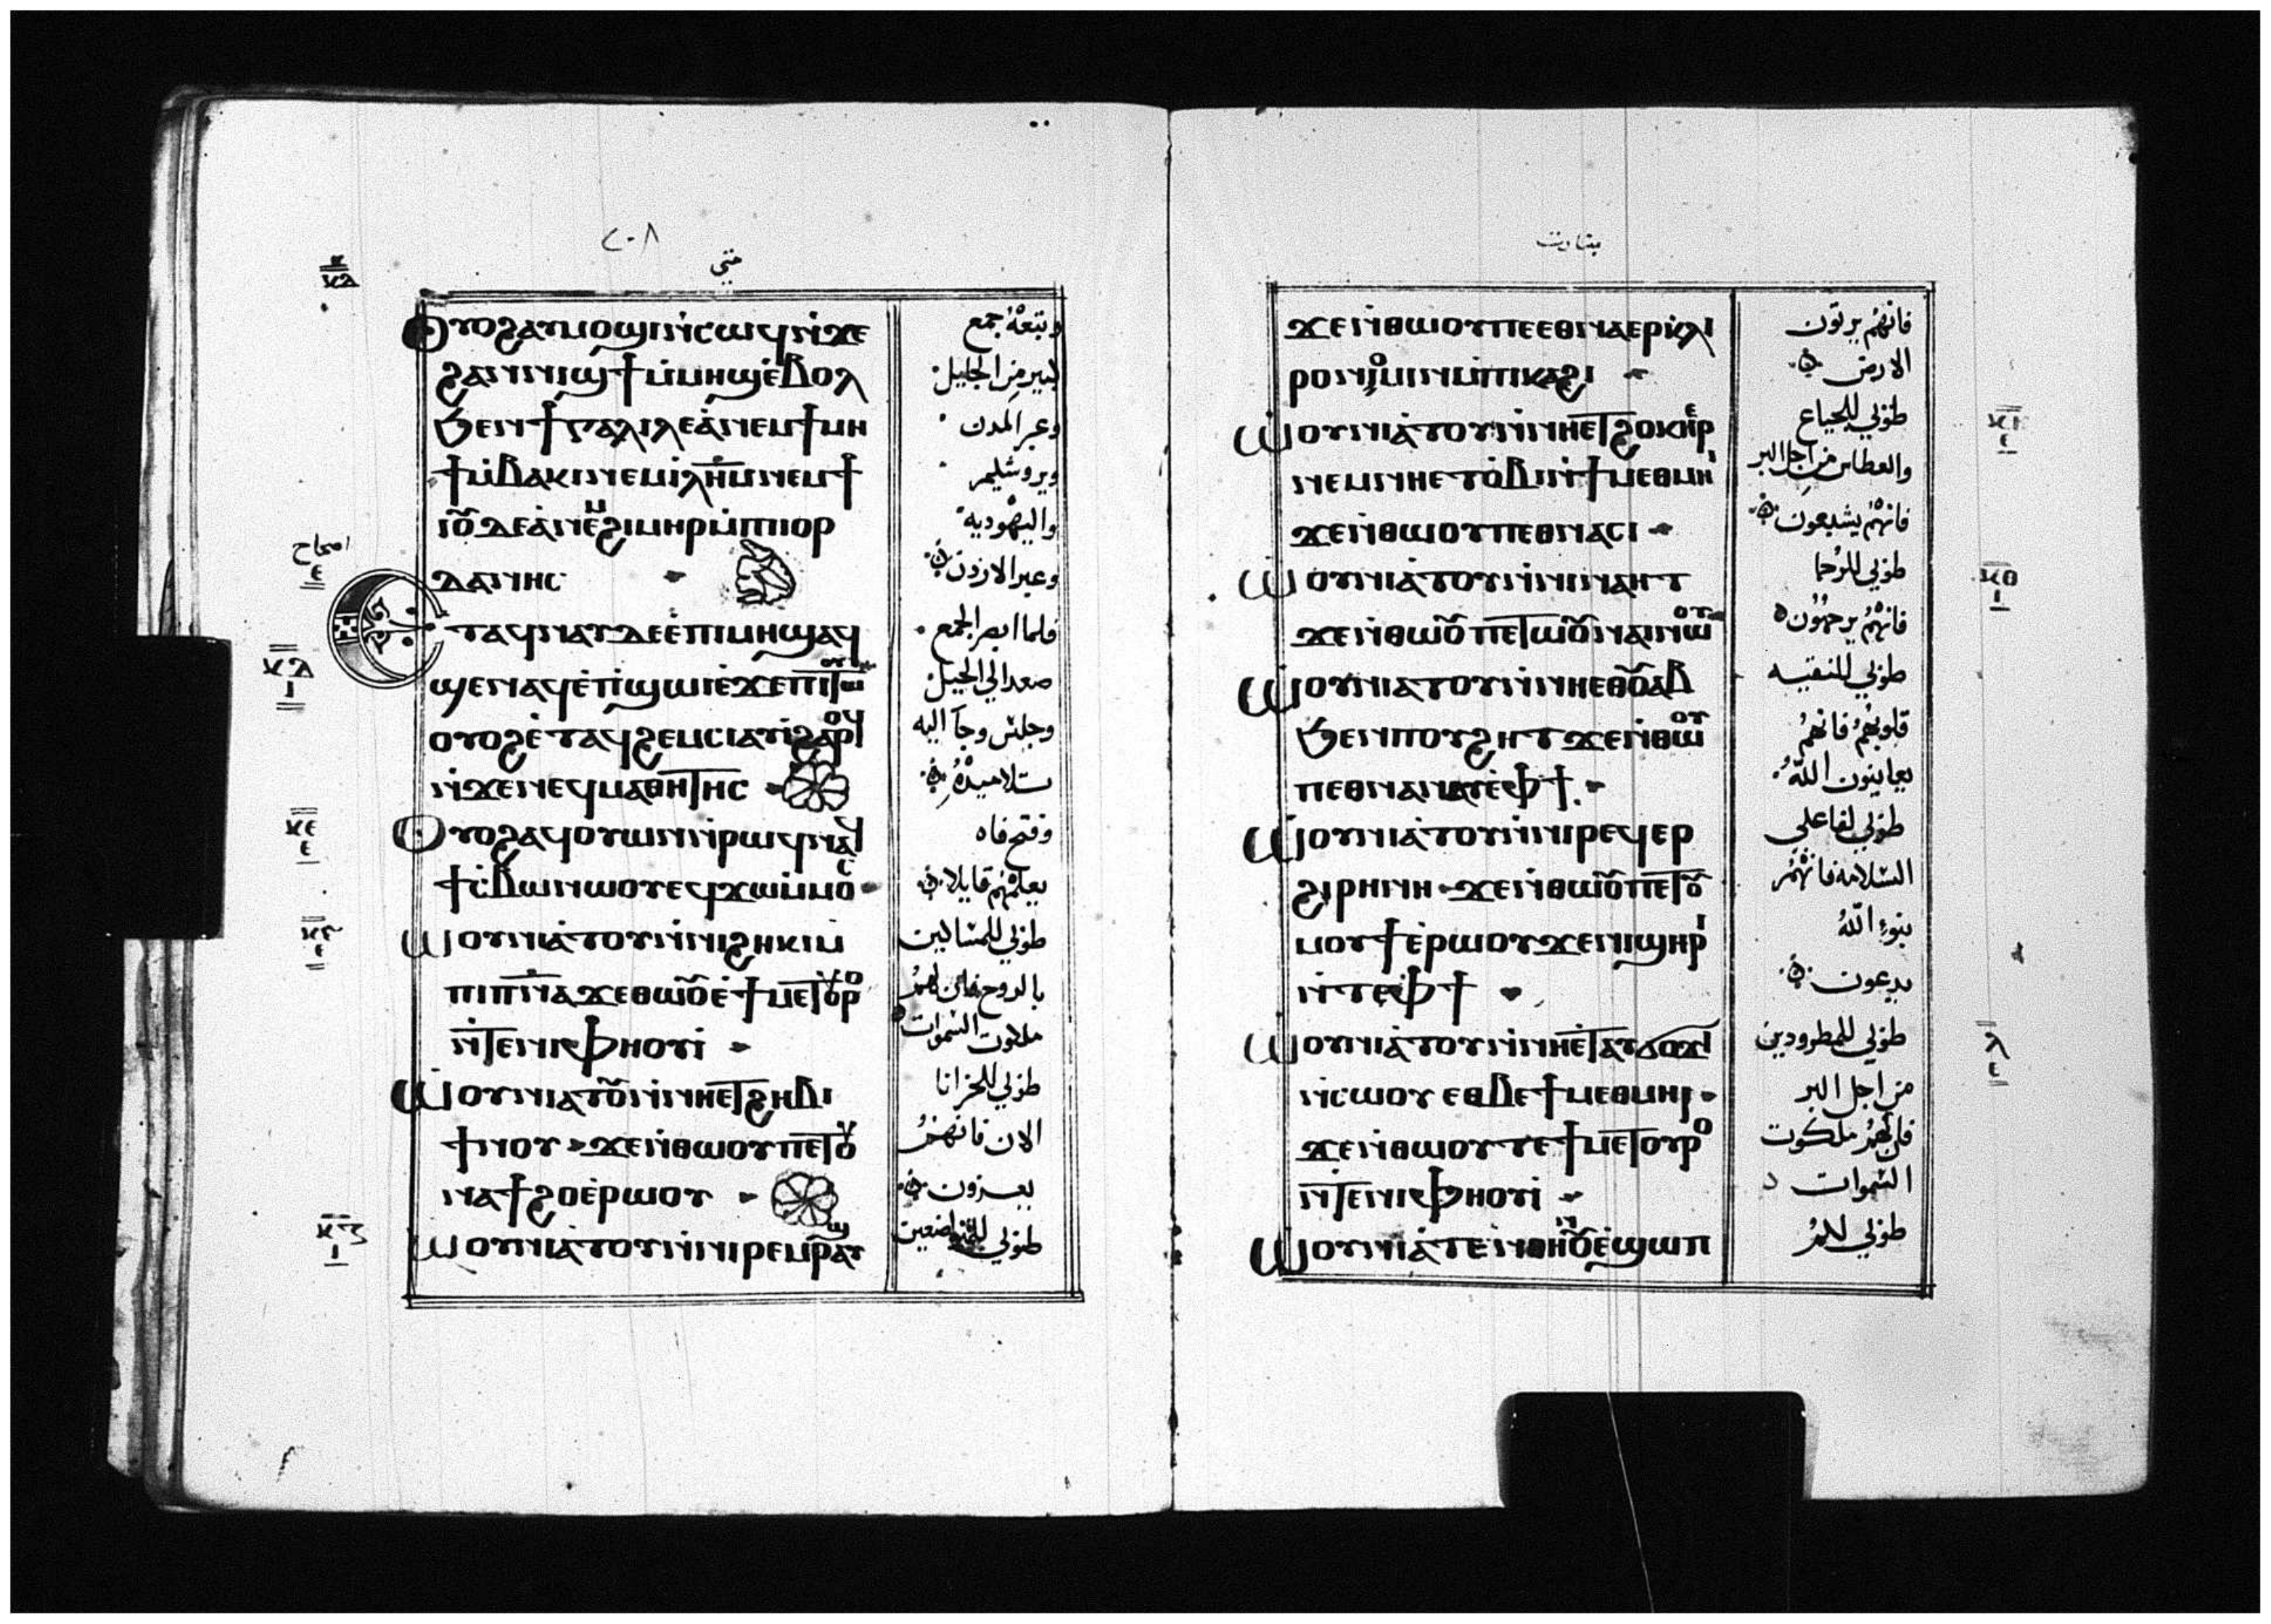 متي
ⲟⲩⲟϩ ⲁⲩⲙⲟϣⲓ ⲛ̇ⲥⲱϥ ⲛ̇ϫⲉ
ϩⲁⲛⲛⲓϣϯ ⲙ̇ⲙⲏϣ ⲉ̇ⲃⲟⲗ
ϧⲉⲛ ϯⲅⲁⲗⲓⲗⲉⲁ̇ ⲛⲉⲙ ϯⲙⲏ
ϯ ⲙ̇ⲃⲁⲕⲓ ⲛⲉⲙ ⲓ̇ⲗ̅ⲏ̅ⲙ̅ ⲛⲉⲙ ϯ
ⲓⲟⲩⲇⲉⲁ̇ ⲛⲉⲙ ϩⲓⲙⲏⲣ ⲙ̇ⲡⲓⲓⲟⲣ
ⲇⲁⲛⲏⲥ
ⲉⲧⲁϥⲛⲁⲩ ⲇⲉ ⲉ̇ⲡⲓⲙⲏϣ ⲁϥ
ϣⲉⲛⲁϥ ⲉ̇ⲡ̇ϣⲱⲓ ⲉ̇ϫⲉⲛ ⲡⲓⲧⲱⲟⲩ
ⲟⲩⲟϩ ⲉ̇ⲧⲁϥϩⲉⲙⲥⲓ ⲁⲩⲓ̇ ϩⲁⲣⲟϥ
ⲛ̇ϫⲉ ⲛⲉϥⲙⲁⲑⲏⲧⲏⲥ
ⲟⲩⲟϩ ⲁϥⲟⲩⲱⲛ ⲛ̇ⲣⲱϥ ⲛⲁϥ
ϯⲥ̇ⲃⲱ ⲛⲱⲟⲩ ⲉϥϫⲱ ⲙ̇ⲙⲟⲥ
ⲱⲟⲩⲛⲓⲁ̇ⲧⲟⲩ ⲛ̇ⲛⲓϩⲏⲕⲓ ⲙ̇
ⲡⲓⲡ̅ⲛ̅ⲁ̅ ϫⲉ ⲑⲱⲟⲩ ⲉ̇ ϯⲙⲉⲧⲟⲩⲣⲟ
ⲛ̇ⲧⲉ ⲛⲓⲫⲏⲟⲩⲓ̇
ⲱⲟⲩⲛⲓⲁⲧⲟⲩ ⲛ̇ⲛⲏⲉⲧⲉⲣϩⲏⲃⲓ
ϯⲛⲟⲩ ϫⲉ ⲛ̇ⲑⲱⲟⲩ ⲡⲉⲧⲟⲩ
ⲛⲁϯϩⲟ ⲉ̇ⲣⲱⲟⲩ
ⲱⲟⲩⲛⲓⲁ̇ⲧⲟⲩ ⲛ̇ⲛⲓⲣⲉⲙⲣⲁⲩϣ
وتبعه جمع
كبير من الجليل
وعبر المدن
ويروشليم
واليهوديه
وعبر الاردن
فلما ابصر الجمع
صعد الي الجبل
وجلس وجآ اليه
تلاميذه
وفتح فاه
يعلمهم قايلا
طوبي للمساكين
بالروح فان لهم
ملكوت السموات
طوبي للحزانا
الان فانهم
يعزون
طوبي للمتواضعين
امحاح
ϫⲉ ⲛ̇ⲑⲱⲟⲩ ⲡⲉⲉⲑⲛⲁⲉⲣⲕⲗⲏ
ⲣⲟⲛⲟⲙⲓⲛ ⲙ̇ⲡⲓⲕⲁϩⲓ
ⲱⲟⲩⲛⲓⲁ̇ⲧⲟⲩ ⲛ̇ⲛⲏⲉⲧϩⲟⲕⲉⲣ
ⲛⲉⲙ ⲛⲏⲉⲧⲟ̇ⲃⲓ ⲛ̇ϯⲙⲉⲑⲙⲏⲓ
ϫⲉ ⲛ̇ⲑⲱⲟⲩ ⲡⲉⲑⲛⲁⲥⲓ
ⲱⲟⲩⲛⲓⲁ̇ⲧⲟⲩ ⲛ̇ⲛⲓⲛⲁⲏⲧ
ϫⲉ ⲛ̇ⲑⲱⲟⲩ ⲡⲉⲧⲟⲩⲛⲁⲛⲁⲓ ⲛⲱⲟⲩ
ⲱⲟⲩⲛⲓⲁⲧⲟⲩ ⲛ̇ⲛⲏⲉⲑⲟⲩⲁⲃ
ϧⲉⲛ ⲡⲟⲩϩⲏⲧ ϫⲉ ⲛ̇ⲑⲱⲟⲩ
ⲡⲉⲑⲛⲁⲛⲁⲩ ⲉ̇ⲫϯ
ⲱⲟⲩⲛⲓⲁ̇ⲧⲟⲩ ⲛ̇ⲛⲓⲣⲉϥⲉⲣ
ϩⲓⲣⲏⲛⲏ ϫⲉ ⲛ̇ⲑⲱⲟⲩ ⲡⲉⲧⲟⲩ
ⲙⲟⲩϯ ⲉ̇ⲣⲱⲟⲩ ϫⲉ ⲛⲓϣⲏⲣⲓ
ⲛ̇ⲧⲉ ⲫϯ
ⲱⲟⲩⲛⲓⲁ̇ⲧⲟⲩ ⲛ̇ⲛⲏⲉⲧⲁⲩϭⲟϫⲓ
ⲛ̇ⲥⲱⲟⲩ ⲉⲑⲃⲉ ϯⲙⲉⲑⲙⲏⲓ
ϫⲉ ⲛ̇ⲑⲱⲟⲩ ⲧⲉ ϯⲙⲉⲧⲟⲩⲣⲟ
ⲛ̇ⲧⲉ ⲛⲓⲫⲏⲟⲩⲓ̇
ⲱⲟⲩⲛⲓⲁ̇ⲧⲉⲛⲑⲏⲛⲟⲩ ⲉ̇ϣⲱⲡ
فانهم يرتون
الارض
طوبي للجياع
والعطاس من اجل البر
فانهم يشبعون
طوبي للرحما
فانهم يرحمون
طوبي للنقيه
قلوبهم فانهم
يعاينون الله
طوبي لفاعلي
السلامه فانهم
بنوا الله
يدعون
طوبي للمطرودين
من اجل البر
فان لهم ملكوت
السموات
طوبي لكم